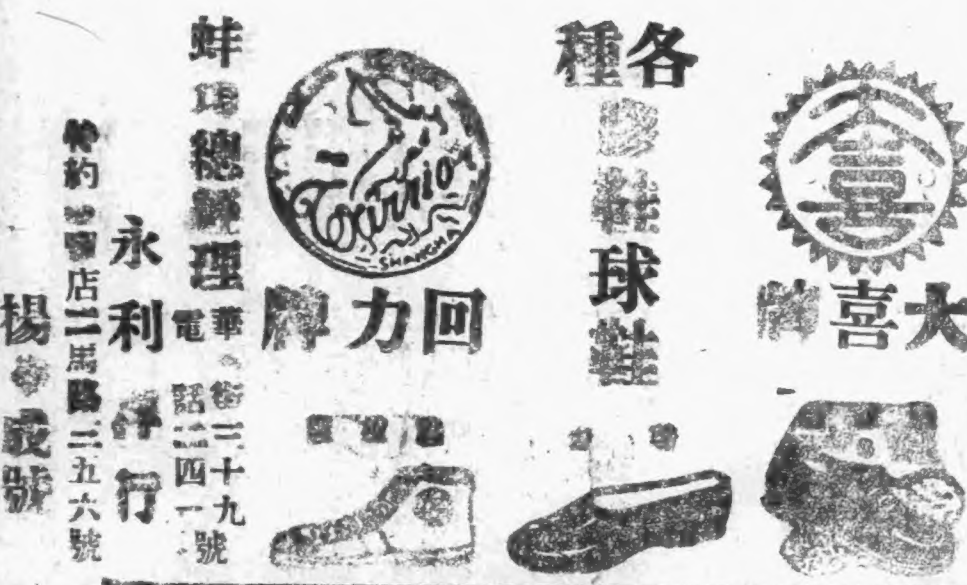 大喜
大喜牌
各種
膠鞋球鞋
Warrior
SHANGHAI
回力牌
蚌埠總經理
華 街三十九號
電話 四一
永利洋行
特約 店二馬路二五六號
楊 成號